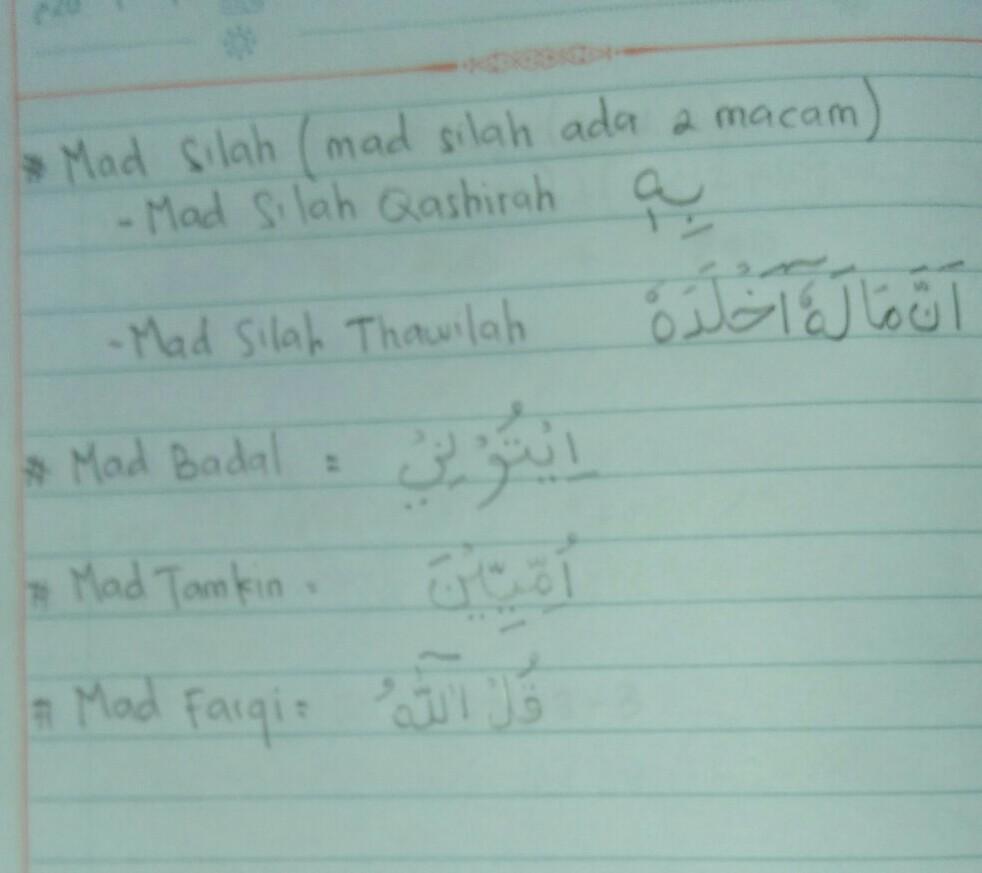 * Mad Silah (mad silah ada 2 macam)
- Mad Silah Qashirah بِهٖ
- Mad Silah Thawilah اَنَّ مَا لَهٗٓ اَخْلَدَهٗ
* Mad Badal = اِيْتُوْنِيْ
* Mad Tamkin = اُمِّيّٖيْنَ
* Mad Farqi = قُلْ آللّٰهُ